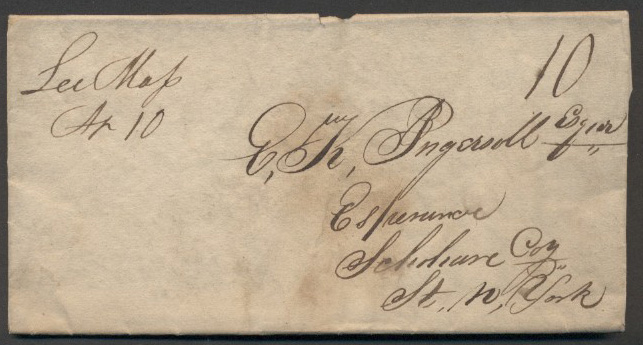 Lee Mass
Ap 10
10
E, K, Ingersoll Esqur
Esperance
Schohare Coy
St, N, York